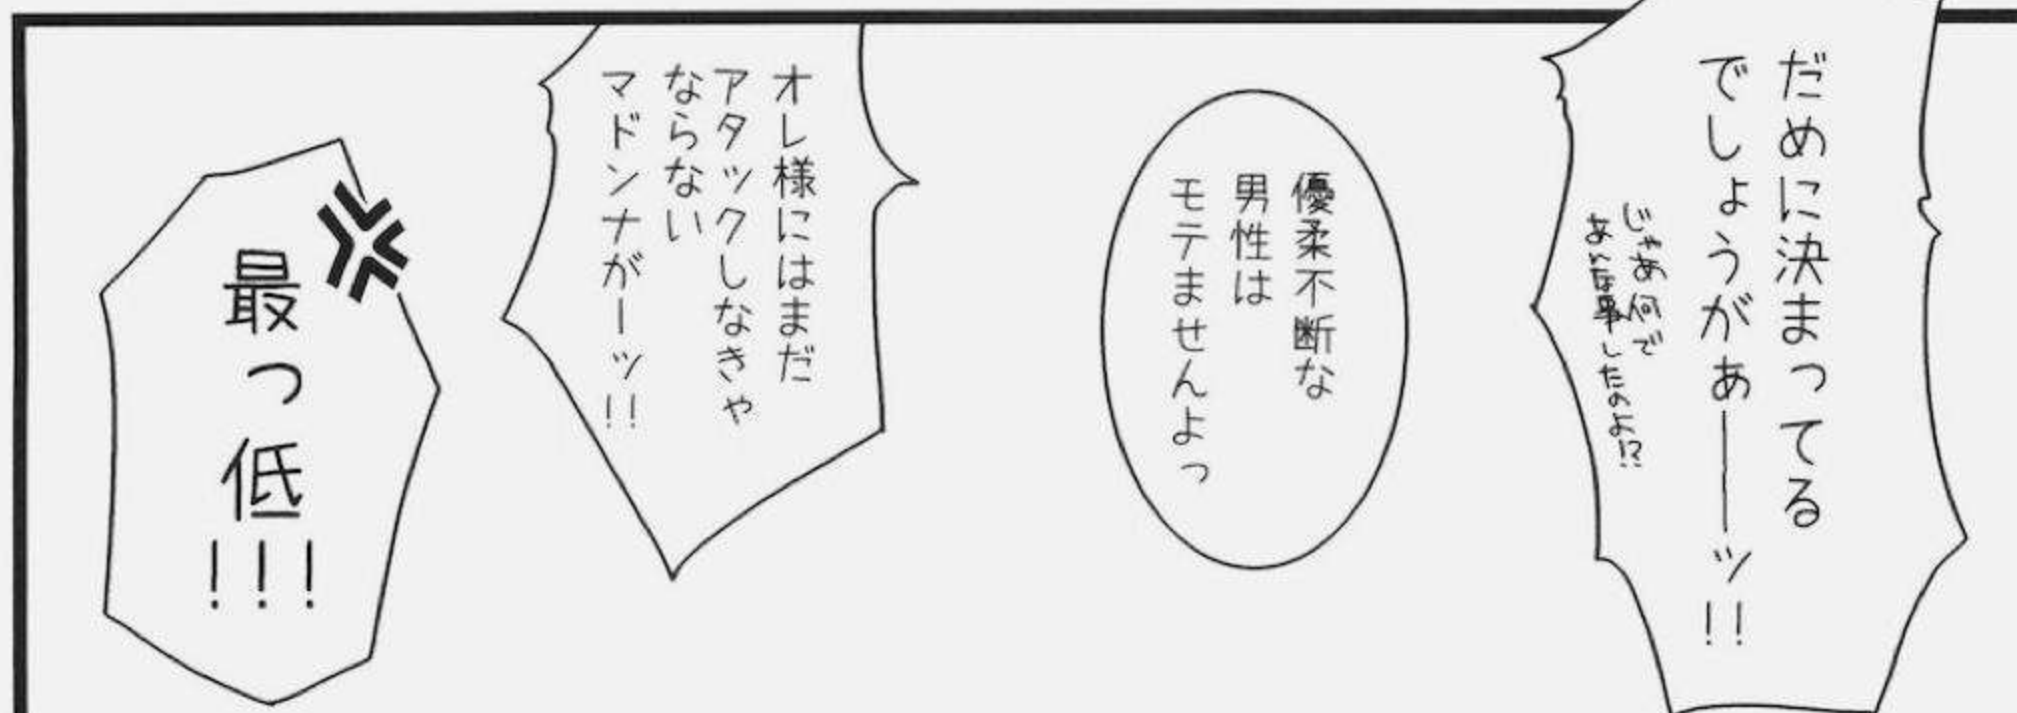 だめに決まってる
でしょうがあーーッ!!
じゃあ何で
あんな事したのよ!?
優柔不断な
男性は
モテませんよっ
オレ様にはまだ
アタックしなきゃ
ならない
マドンナがーッ!!
最っ低!!!